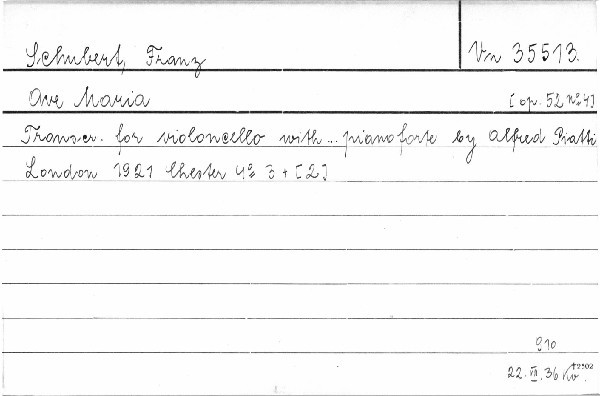 Schubert, Franz
Vn 35513.
Ave Maria
[op. 52 No 4]
Transcr. for violoncello with ... pianoforte by Alfred Piatti
London 1921 Chester 4o 3 + [2]
910
22. VII. 36
†2502